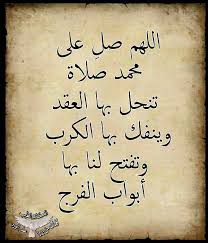 اللهم صلِ على
محمد صلاة
تنحل بها العقد
وينفك بها الكرب
وتفتح لنا بها
أبواب الفرج